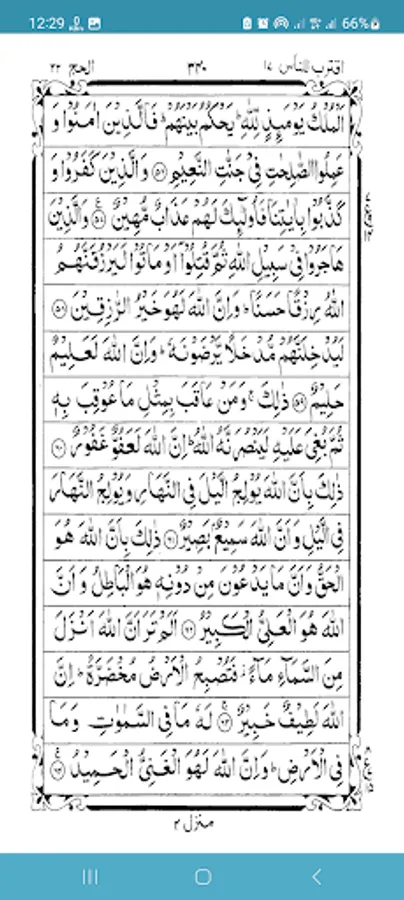 12:29
66%
اقترب للناس ١٧
٣٣٠
الحج ٢٢
اَلْمُلْكُ يَوْمَىِٕذٍ لِّلّٰهِ ؕ يَحْكُمُ بَيْنَهُمْ ؕ فَالَّذِيْنَ اٰمَنُوْا وَ
عَمِلُوا الصّٰلِحٰتِ فِيْ جَنّٰتِ النَّعِيْمِ ۝۵۶ وَ الَّذِيْنَ كَفَرُوْا وَ
كَذَّبُوْا بِاٰيٰتِنَا فَاُولٰٓىِٕكَ لَهُمْ عَذَابٌ مُّهِيْنٌ ۝۵۷ وَ الَّذِيْنَ
هَاجَرُوْا فِيْ سَبِيْلِ اللّٰهِ ثُمَّ قُتِلُوْۤا اَوْ مَاتُوْا لَيَرْزُقَنَّهُمُ
اللّٰهُ رِزْقًا حَسَنًا ؕ وَ اِنَّ اللّٰهَ لَهُوَ خَيْرُ الرّٰزِقِيْنَ ۝۵۸
لَيُدْخِلَنَّهُمْ مُّدْخَلًا يَّرْضَوْنَهٗ ؕ وَ اِنَّ اللّٰهَ لَعَلِيْمٌ
حَلِيْمٌ ۝۵۹ ذٰلِكَ ۚ وَ مَنْ عَاقَبَ بِمِثْلِ مَا عُوْقِبَ بِهٖ
ثُمَّ بُغِيَ عَلَيْهِ لَيَنْصُرَنَّهُ اللّٰهُ ؕ اِنَّ اللّٰهَ لَعَفُوٌّ غَفُوْرٌ ۝۶۰
ذٰلِكَ بِاَنَّ اللّٰهَ يُوْلِجُ الَّيْلَ فِي النَّهَارِ وَ يُوْلِجُ النَّهَارَ
فِي الَّيْلِ وَ اَنَّ اللّٰهَ سَمِيْعٌۢ بَصِيْرٌ ۝۶۱ ذٰلِكَ بِاَنَّ اللّٰهَ هُوَ
الْحَقُّ وَ اَنَّ مَا يَدْعُوْنَ مِنْ دُوْنِهٖ هُوَ الْبَاطِلُ وَ اَنَّ
اللّٰهَ هُوَ الْعَلِيُّ الْكَبِيْرُ ۝۶۲ اَلَمْ تَرَ اَنَّ اللّٰهَ اَنْزَلَ
مِنَ السَّمَآءِ مَآءً ؗ فَتُصْبِحُ الْاَرْضُ مُخْضَرَّةً ؕ اِنَّ
اللّٰهَ لَطِيْفٌ خَبِيْرٌ ۝۶۳ لَهٗ مَا فِي السَّمٰوٰتِ وَ مَا
فِي الْاَرْضِ ؕ وَ اِنَّ اللّٰهَ لَهُوَ الْغَنِيُّ الْحَمِيْدُ ۝۶۴
منزل ٢